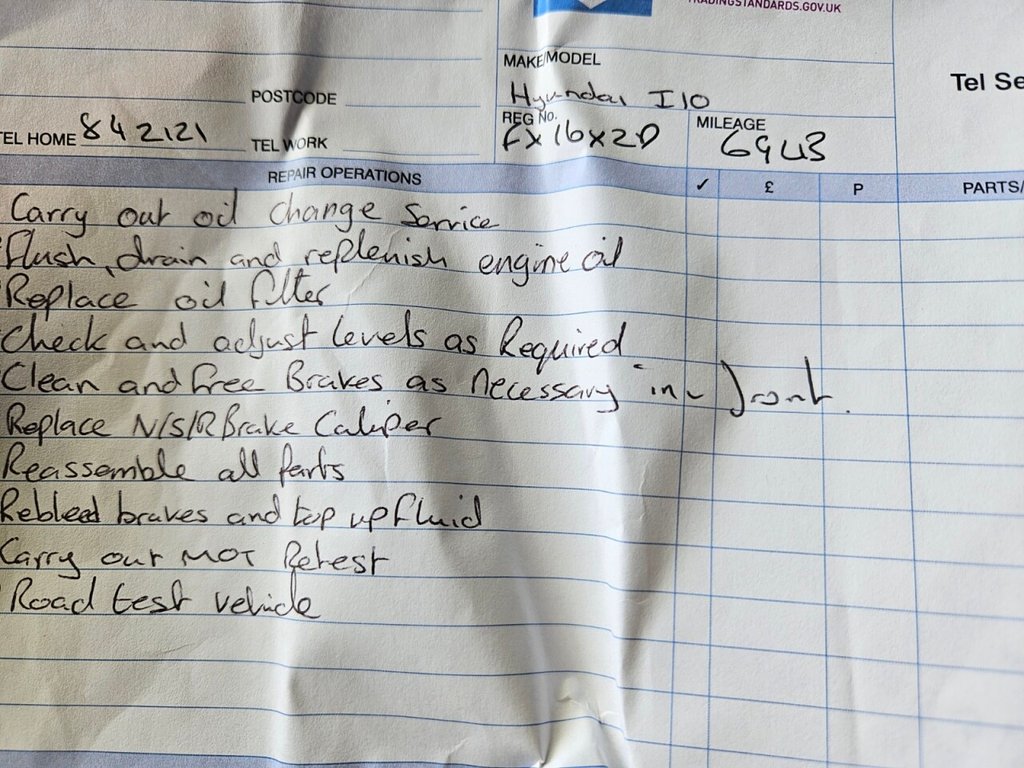 TRADINGSTANDARDS.GOV.UK
MAKE/MODEL
Hyundai I10
Tel Se
POSTCODE
REG NO.
MILEAGE
TEL HOME 842121
TEL WORK
FX16X2D
REPAIR OPERATIONS
✓ £ P PARTS/
Carry out oil change Service
Flush, drain and replenish engine oil
Replace oil filter
Check and adjust levels as Required
Clean and free Brakes as Necessary in front.
Replace N/S/R Brake Caliper
Reassemble all parts
Rebleed brakes and top up fluid
Carry out MOT Retest
Road test vehicle